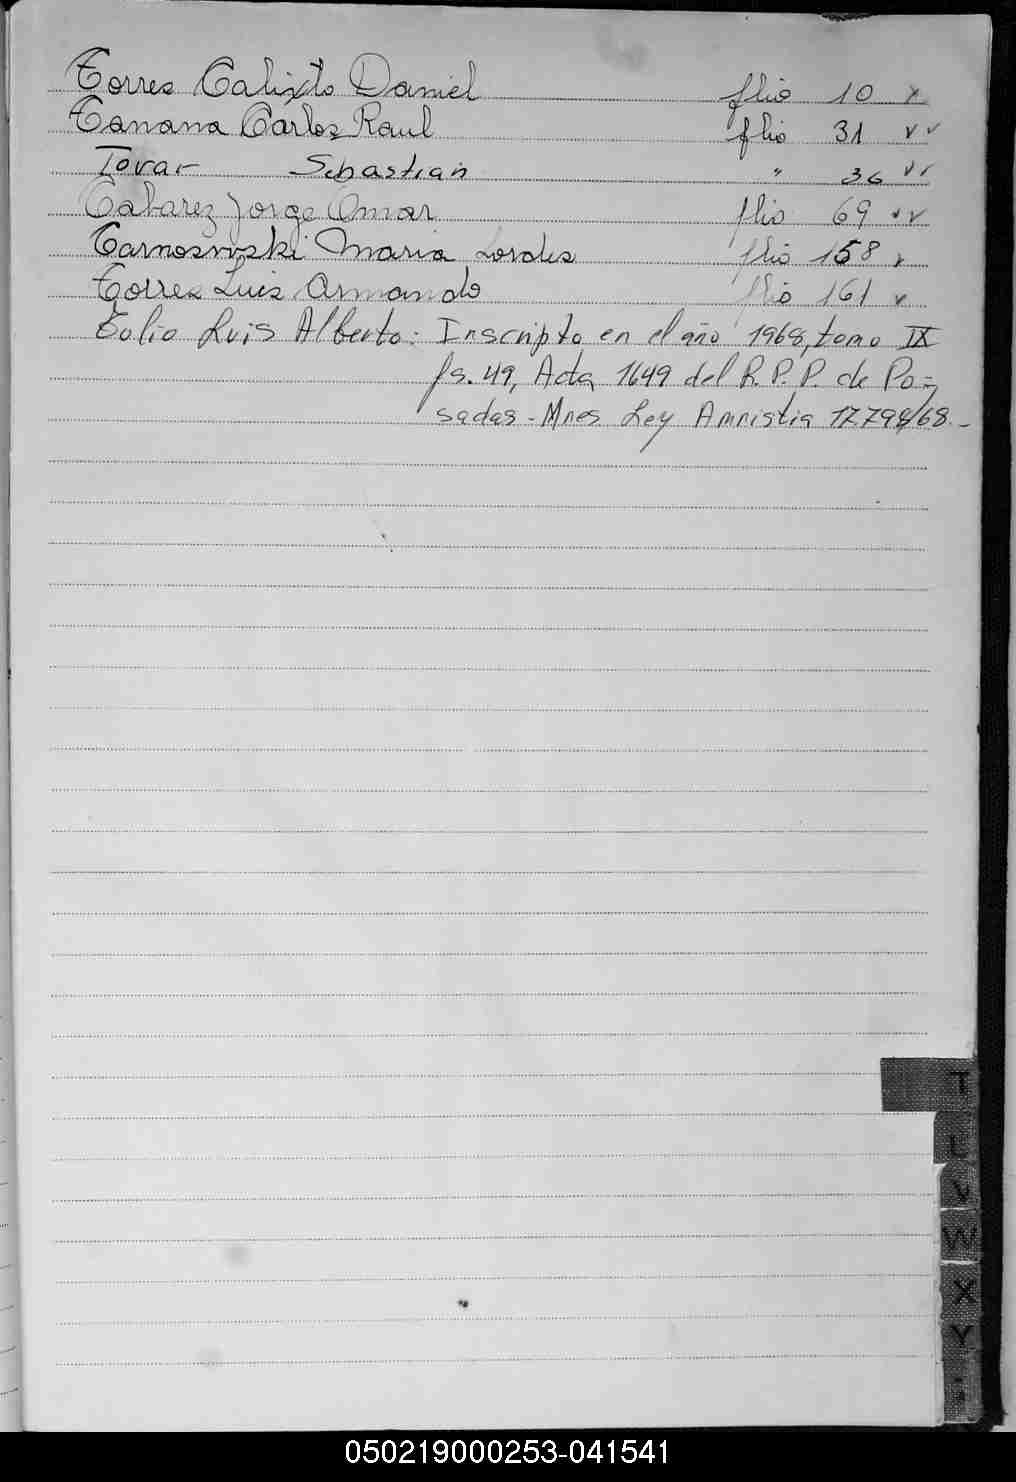 Torres Calixto Daniel flio 10 x
Tanana Carlos Raul flio 31 ✓✓
Tovar Sebastian " 36 ✓✓
Tabarez Jorge Omar flio 69 ✓✓
Tarnoswski Maria Lordes flio 158 ✓
Torres Luis Armando flio 161 ✓
Tulio Luis Alberto: Inscripto en el año 1968, tomo IX
fs. 49, Acta 1649 del R.P.P. de Po=
sadas - Mnes Ley Amnistia 17.798/68.-
T
L
V
W
X
Y
050219000253-041541